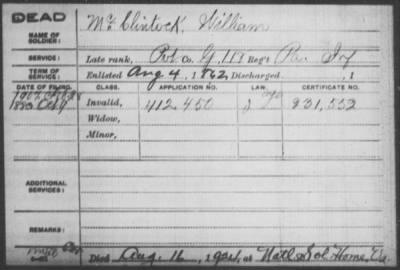 DEAD
NAME OF SOLDIER:
McClintock, William
SERVICE:
Late rank, Pvt Co. G, 118 Reg't Pa. Inf
TERM OF SERVICE:
Enlisted Aug 4, 1862, Discharged , 1
DATE OF FILING.
CLASS.
APPLICATION NO.
LAW.
CERTIFICATE NO.
Invalid, 412 450 831,552
Widow,
Minor,
ADDITIONAL SERVICES:
REMARKS:
Died Aug. 16, 1924, at Natl Sol Home, Va.